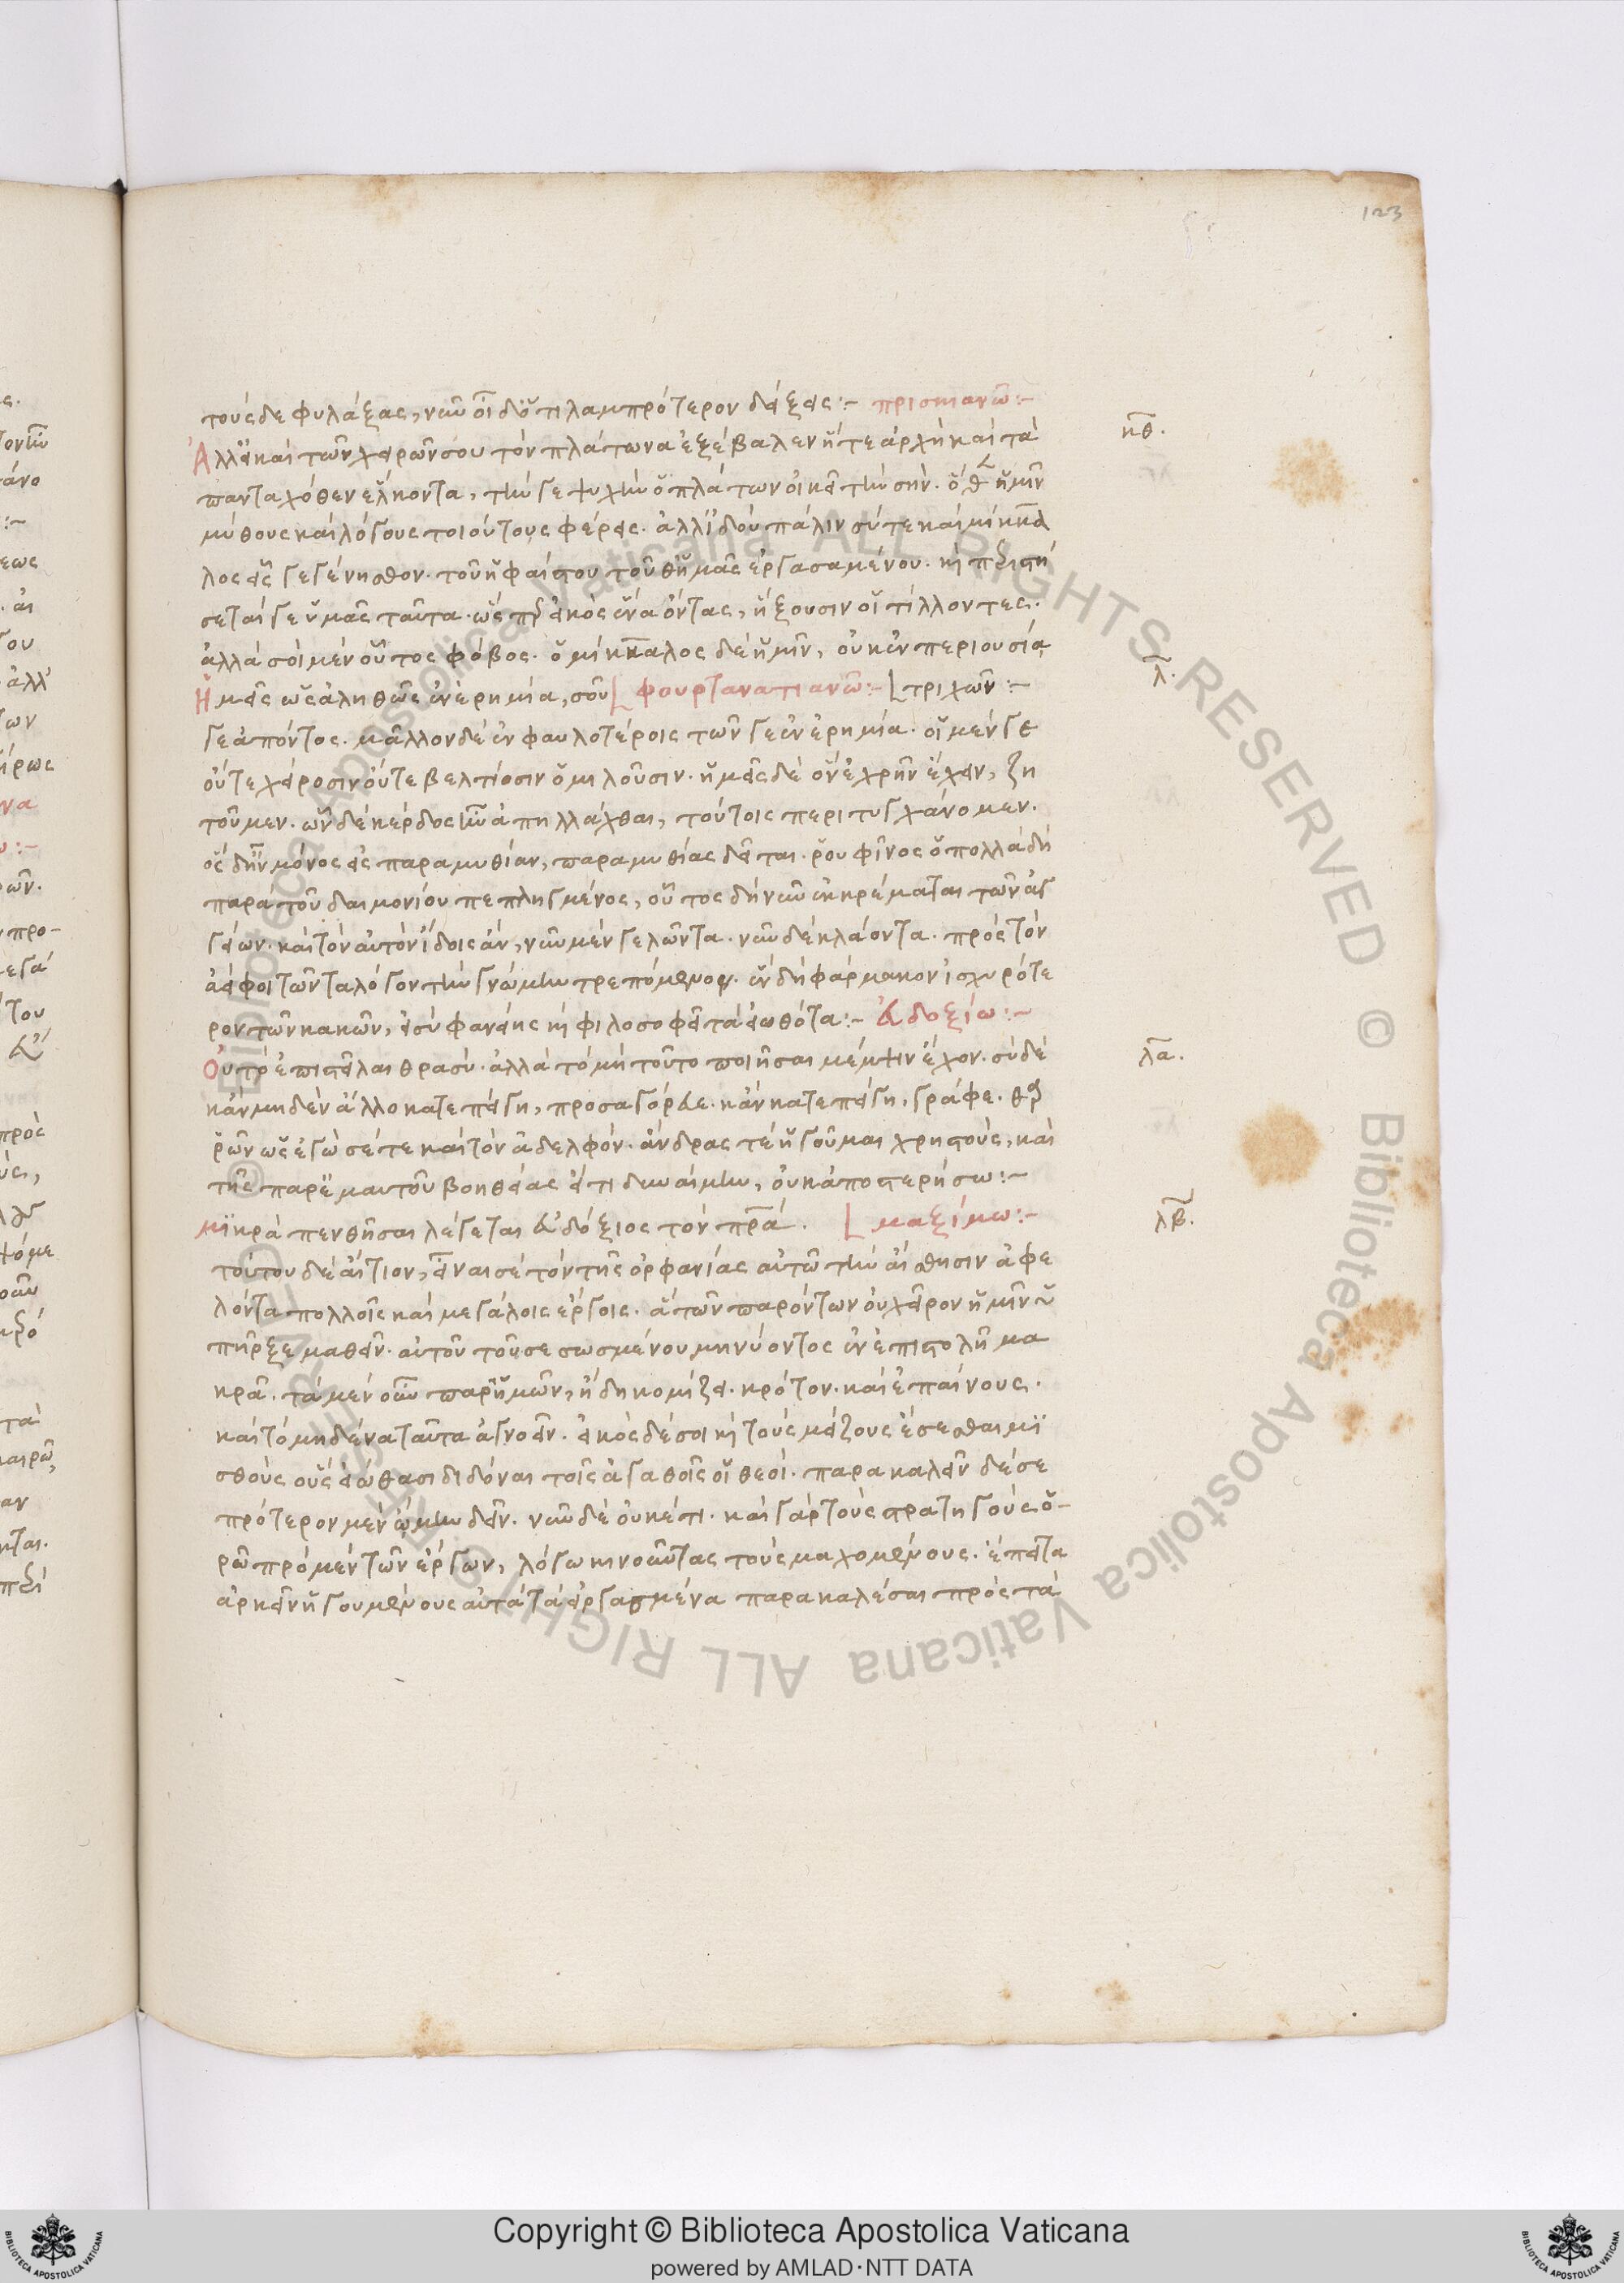 123
τούς δε φυλάξας, νῦν οἶδ' ὅτι λαμπρότερον δείξεις :– πρισκιανῶ :–
κθ.
Ἀλλ' ἐκ μὲν τῶν χειρῶν σου τὸν πλάτωνα ἐξέβαλεν ἥ τε ἀρχὴ καὶ τὰ
πανταχόθεν ἕλκοντα, τὴν γε ψυχὴν ὁ πλάτων οἰκεῖ τὴν σήν. ὅθεν ἡμῖν
μύθους καὶ λόγους τοιούτους φέρεις. ἀλλ' ἰδοὺ πάλιν σύ τε καὶ μίκκα
λος εἷς γεγένησθον. τοῦ ἡφαίστου τοῦθ' ἡμᾶς ἐργασαμένου. κὴ περιστή
σεταί γε ὑμᾶς ταῦτα. ὡς πρ εἰκὸς ἕνα ὄντας, ἥξουσιν οἱ τίλλοντες.
ἀλλὰ σοὶ μὲν οὗτος φόβος. ὁ μίκκαλος δὲ ἡμῖν, οὐκ ἐν περιουσία
λ.
Ἡμεῖς ὡς ἀληθῶς ἐν ἐρημία, σοῦ φουρτανατιανῶ :– τριχῶν :–
γε ἀπόντος. μᾶλλον δὲ ἐν φαυλοτέροις τῶν γε ἐν ἐρημία. οἱ μέν γε
οὔτε χείροσιν οὔτε βελτίοσιν ὁμιλοῦσιν. ἡμεῖς δὲ οὓς ἐχρῆν ἔχειν, ζη
τοῦμεν. ὧν δὲ κέρδος ἦν ἀπηλλάχθαι, τούτοις περιτυγχάνομεν.
ὃς δ' ἦν μόνος εἰς παραμυθίαν, παραμυθίας δεῖται. ῥουφῖνος ὁ πολλὰ δὴ
παρὰ τοῦ δαιμονίου πεπληγμένος, οὗτος δὴ νῦν ἐκκρέμαται τῶν ἀγ
γείων. καὶ τὸν αὐτὸν ἴδοις ἄν, νῦν μὲν γελῶντα. νῦν δὲ κλάοντα. πρὸς τὸν
ἀεὶ φοιτῶντα λόγον τὴν γνώμην τρεπόμενον. ἓν δὴ φάρμακον ἰσχυρότε
ρον τῶν κακῶν, εἰ σὺ φανείης κὴ φιλοσοφεῖ τὰ εἰωθότα :– Εὐδοξίω :–
λα.
Οὐ τὸ ἐπιστεῖλαι θρασύ. ἀλλὰ τὸ μὴ τοῦτο ποιῆσαι μέμψιν ἔχον. σὺ δὲ
κἂν μηδὲν ἄλλο κατεπείγη, προσαγόρευε. κἂν κατεπείγη, γράφε. θαρ
ῥῶν ὡς ἐγὼ σέ τε καὶ τὸν ἀδελφὸν. ἄνδρας τὲ ἡγοῦμαι χρηστούς, καὶ
τῆς παρ' ἐμαυτοῦ βοηθείας εἴ τι δυναίμην, οὐκ ἀποστερήσω :–
λβ.
Μικρὰ πενθῆσαι λέγεται εὐδόξιος τὸν πρα. μαξίμω :–
τούτου δὲ αἴτιον, εἶναι σὲ τὸν τῆς ὀρφανίας αὐτῶ τὴν αἴσθησιν ἀφε
λόντα πολλοῖς καὶ μεγάλοις ἔργοις. ἃ τῶν παρόντων οὐ χεῖρον ἡμῖν ὑ
πῆρξε μαθεῖν. αὐτοῦ τοῦ σεσωσμένου μηνύοντος ἐν ἐπιστολῆ μα
κρᾶ. τὰ μὲν οὖν παρ' ἡμῶν, ἤδη κομίζει. κρότον. καὶ ἐπαίνους.
καὶ τὸ μηδένα ταῦτα ἀγνοεῖν. εἰκὸς δέ σοι κὴ τοὺς μείζους ἔσεσθαι μι
σθοὺς οὓς εἰώθασι διδόναι τοῖς ἀγαθοῖς οἱ θεοί. παρακαλεῖν δέ σε
πρότερον μὲν ᾤμην δεῖν. νῦν δὲ οὐκέτι. καὶ γὰρ τοὺς στρατηγοὺς ὁ–
ρῶ πρὸ μὲν τῶν ἔργων, λόγω κινοῦντας τοὺς μαχομένους. ἔπειτα
ἀρκεῖν ἡγουμένους αὐτὰ τὰ εἰργασμένα παρακαλέσαι πρὸς τὰ
Copyright © Biblioteca Apostolica Vaticana
powered by AMLAD · NTT DATA